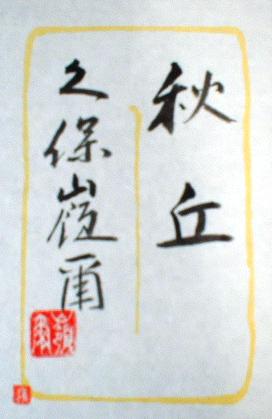 秋丘
久保嶺爾